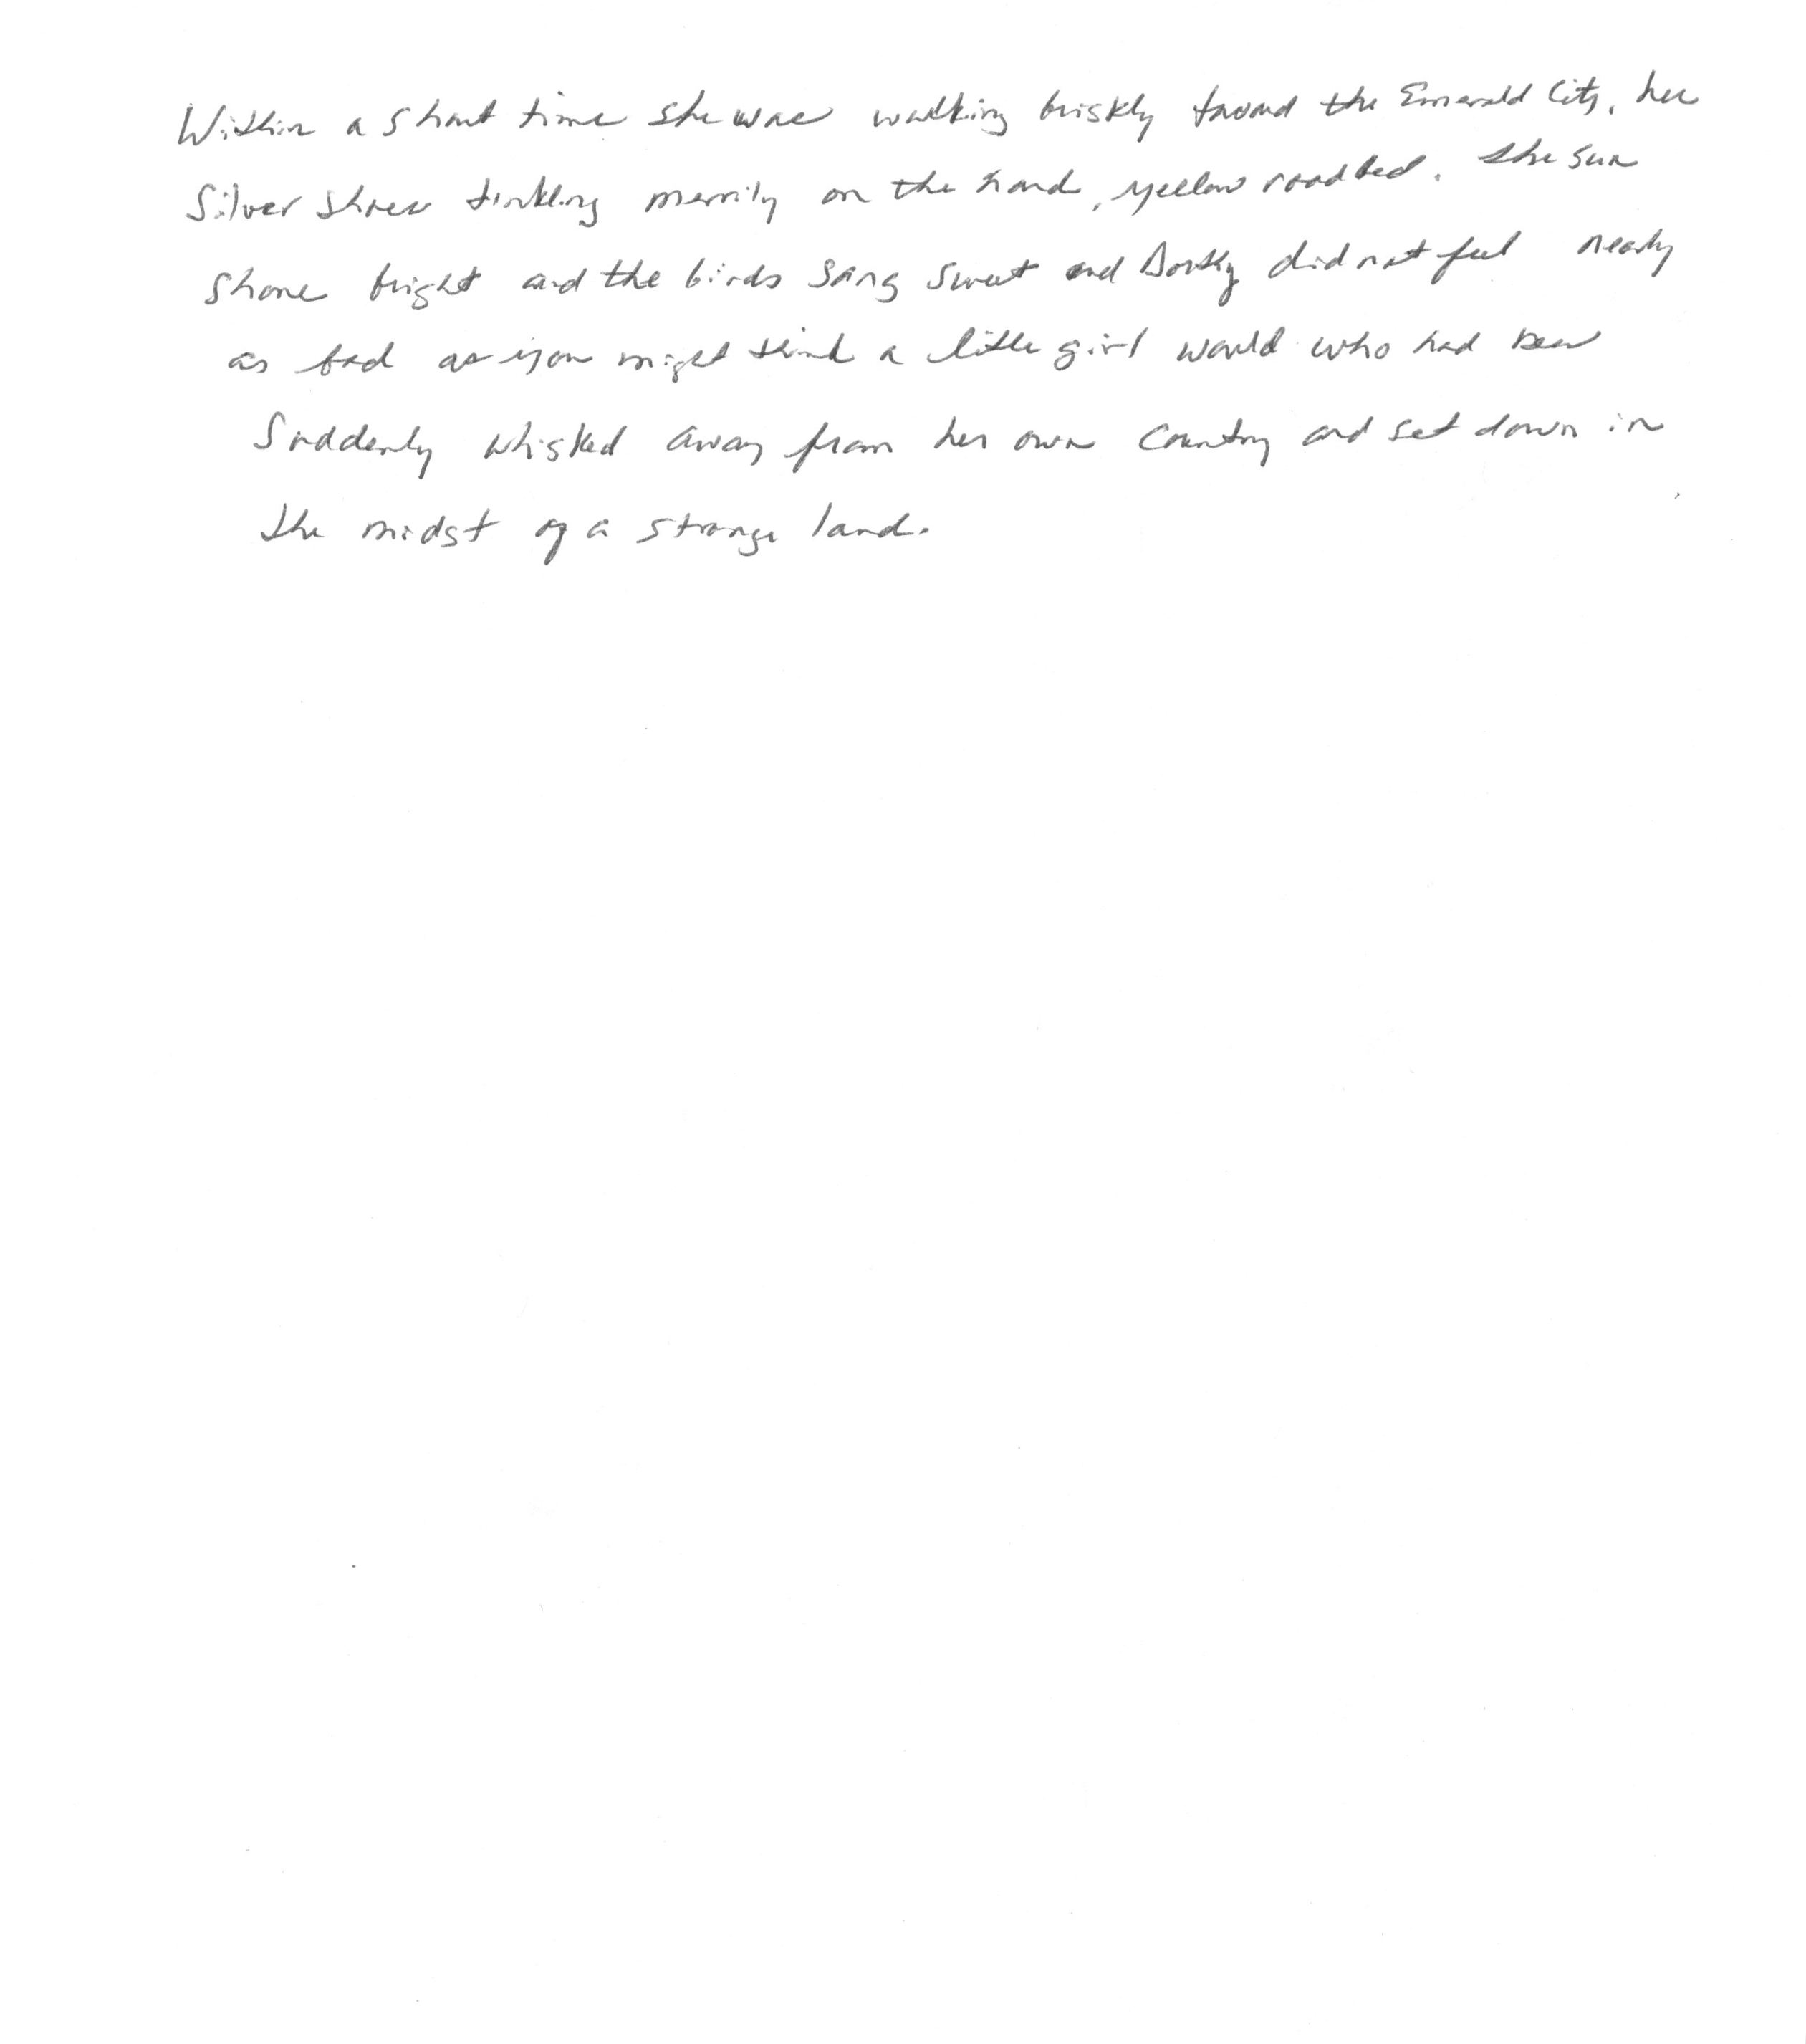 Within a short time she was walking briskly toward the Emerald City, her
Silver Shoes tinkling merrily on the hard, yellow roadbed. The sun
shone bright and the birds sang sweet and Dorothy did not feel nearly
as bad as you might think a little girl would who had been
suddenly whisked away from her own country and set down in
the midst of a strange land.